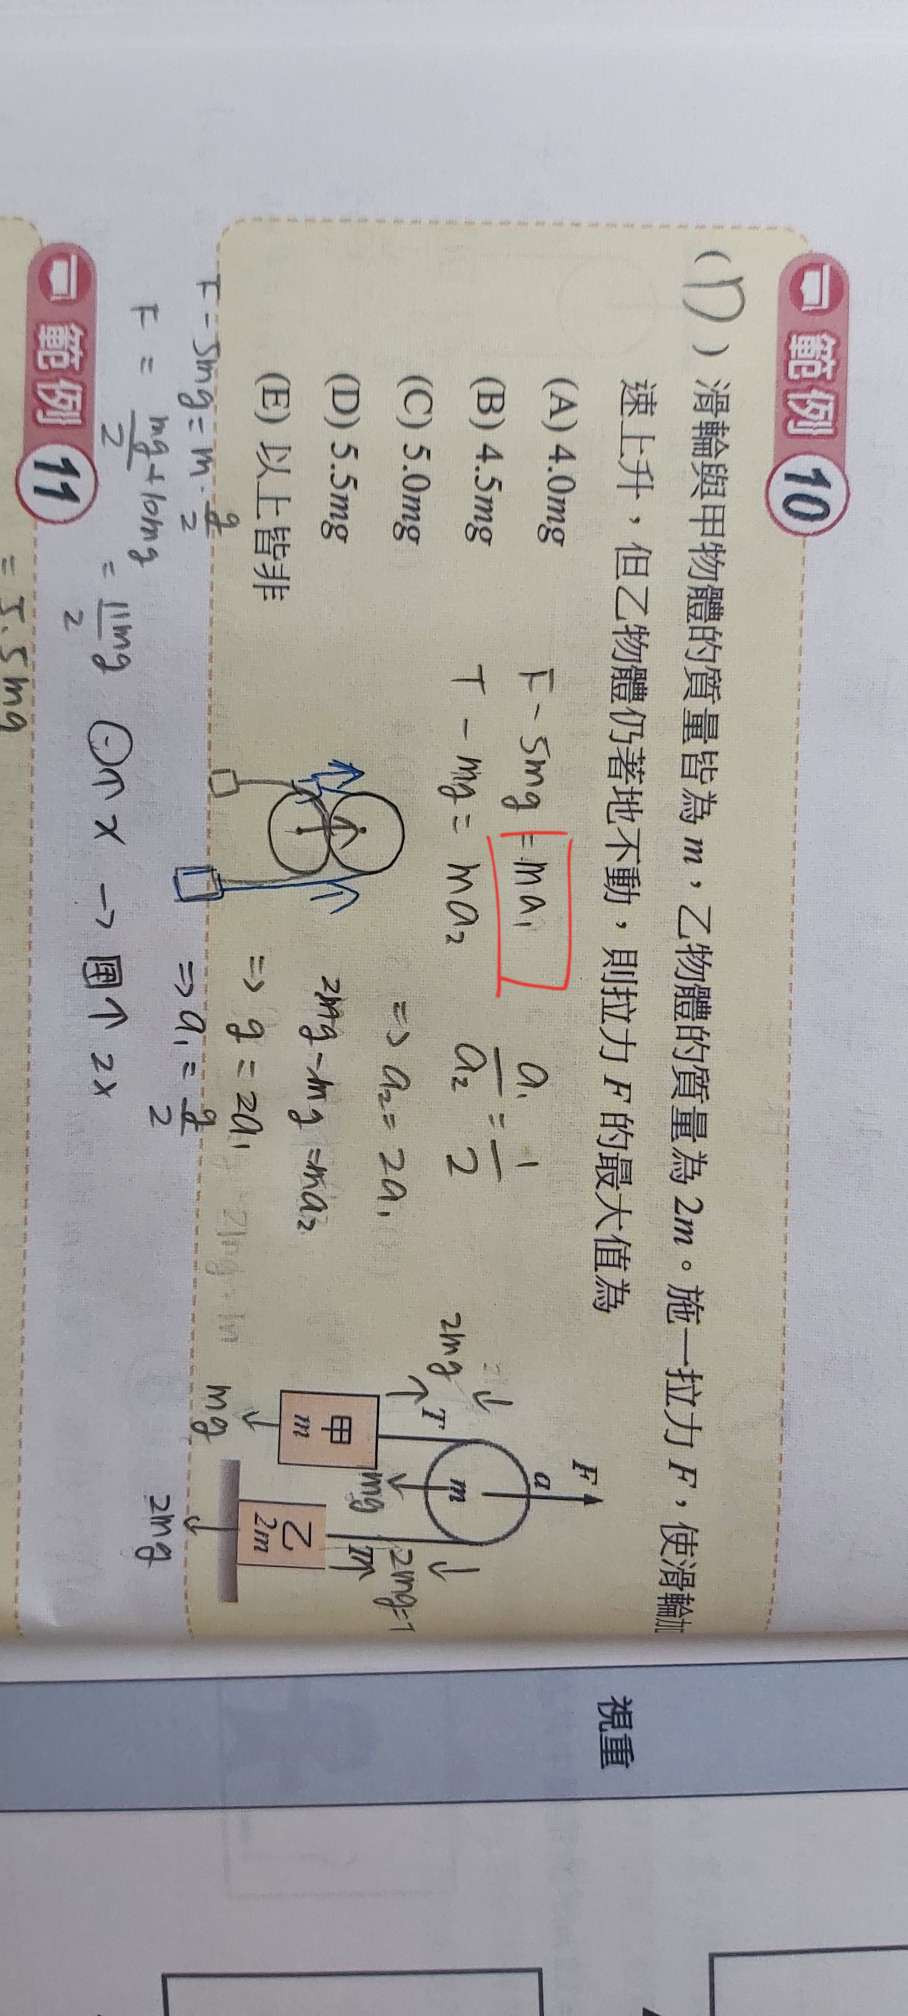 範例 10
(D) 滑輪與甲物體的質量皆為 m，乙物體的質量為 2m。施一拉力 F，使滑輪加
速上升，但乙物體仍著地不動，則拉力 F 的最大值為
(A) 4.0mg
(B) 4.5mg
(C) 5.0mg
(D) 5.5mg
(E) 以上皆非
F - 5mg = ma₁
T - mg = ma₂
a₁/a₂ = 1/2
⇒ a₂ = 2a₁
2mg - mg = ma₂
⇒ g = 2a₁
⇒ a₁ = g/2
F
a
m
T
2mg
mg
甲
m
mg
乙
2m
T
2mg=T
2mg
F - 5mg = m · g/2
F = (mg + 10mg)/2 = 11mg/2
= 5.5mg
↑ x → 甲 ↑ 2x
範例 11
視重